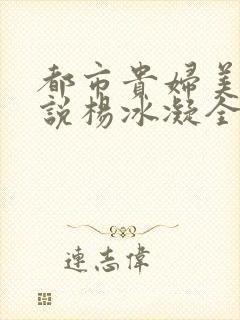 都市貴婦美
說楊冰凝全
連志偉